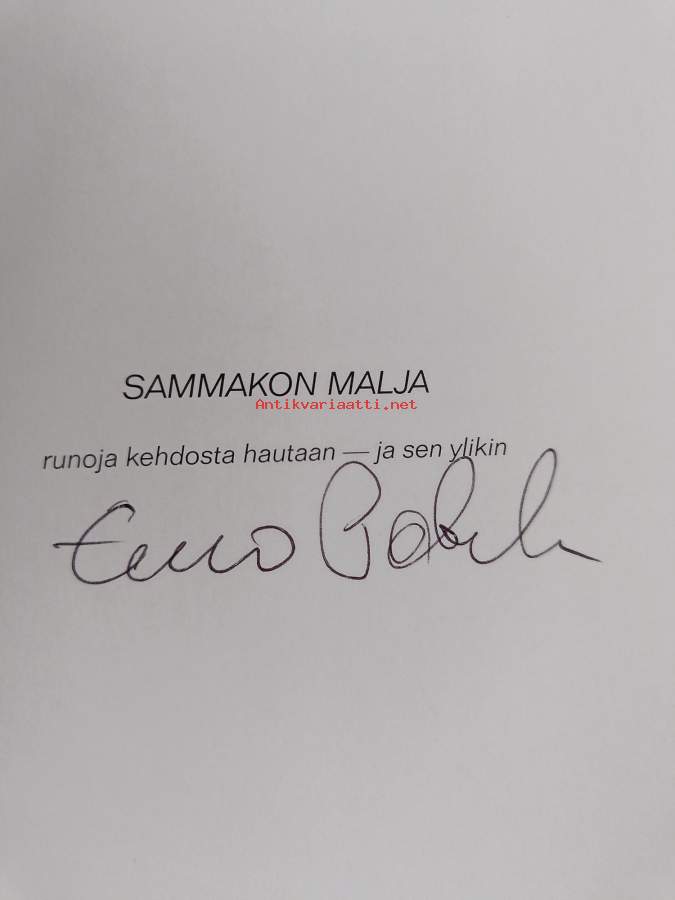 SAMMAKON MALJA
Antikvariaatti.net
runoja kehdosta hautaan — ja sen ylikin